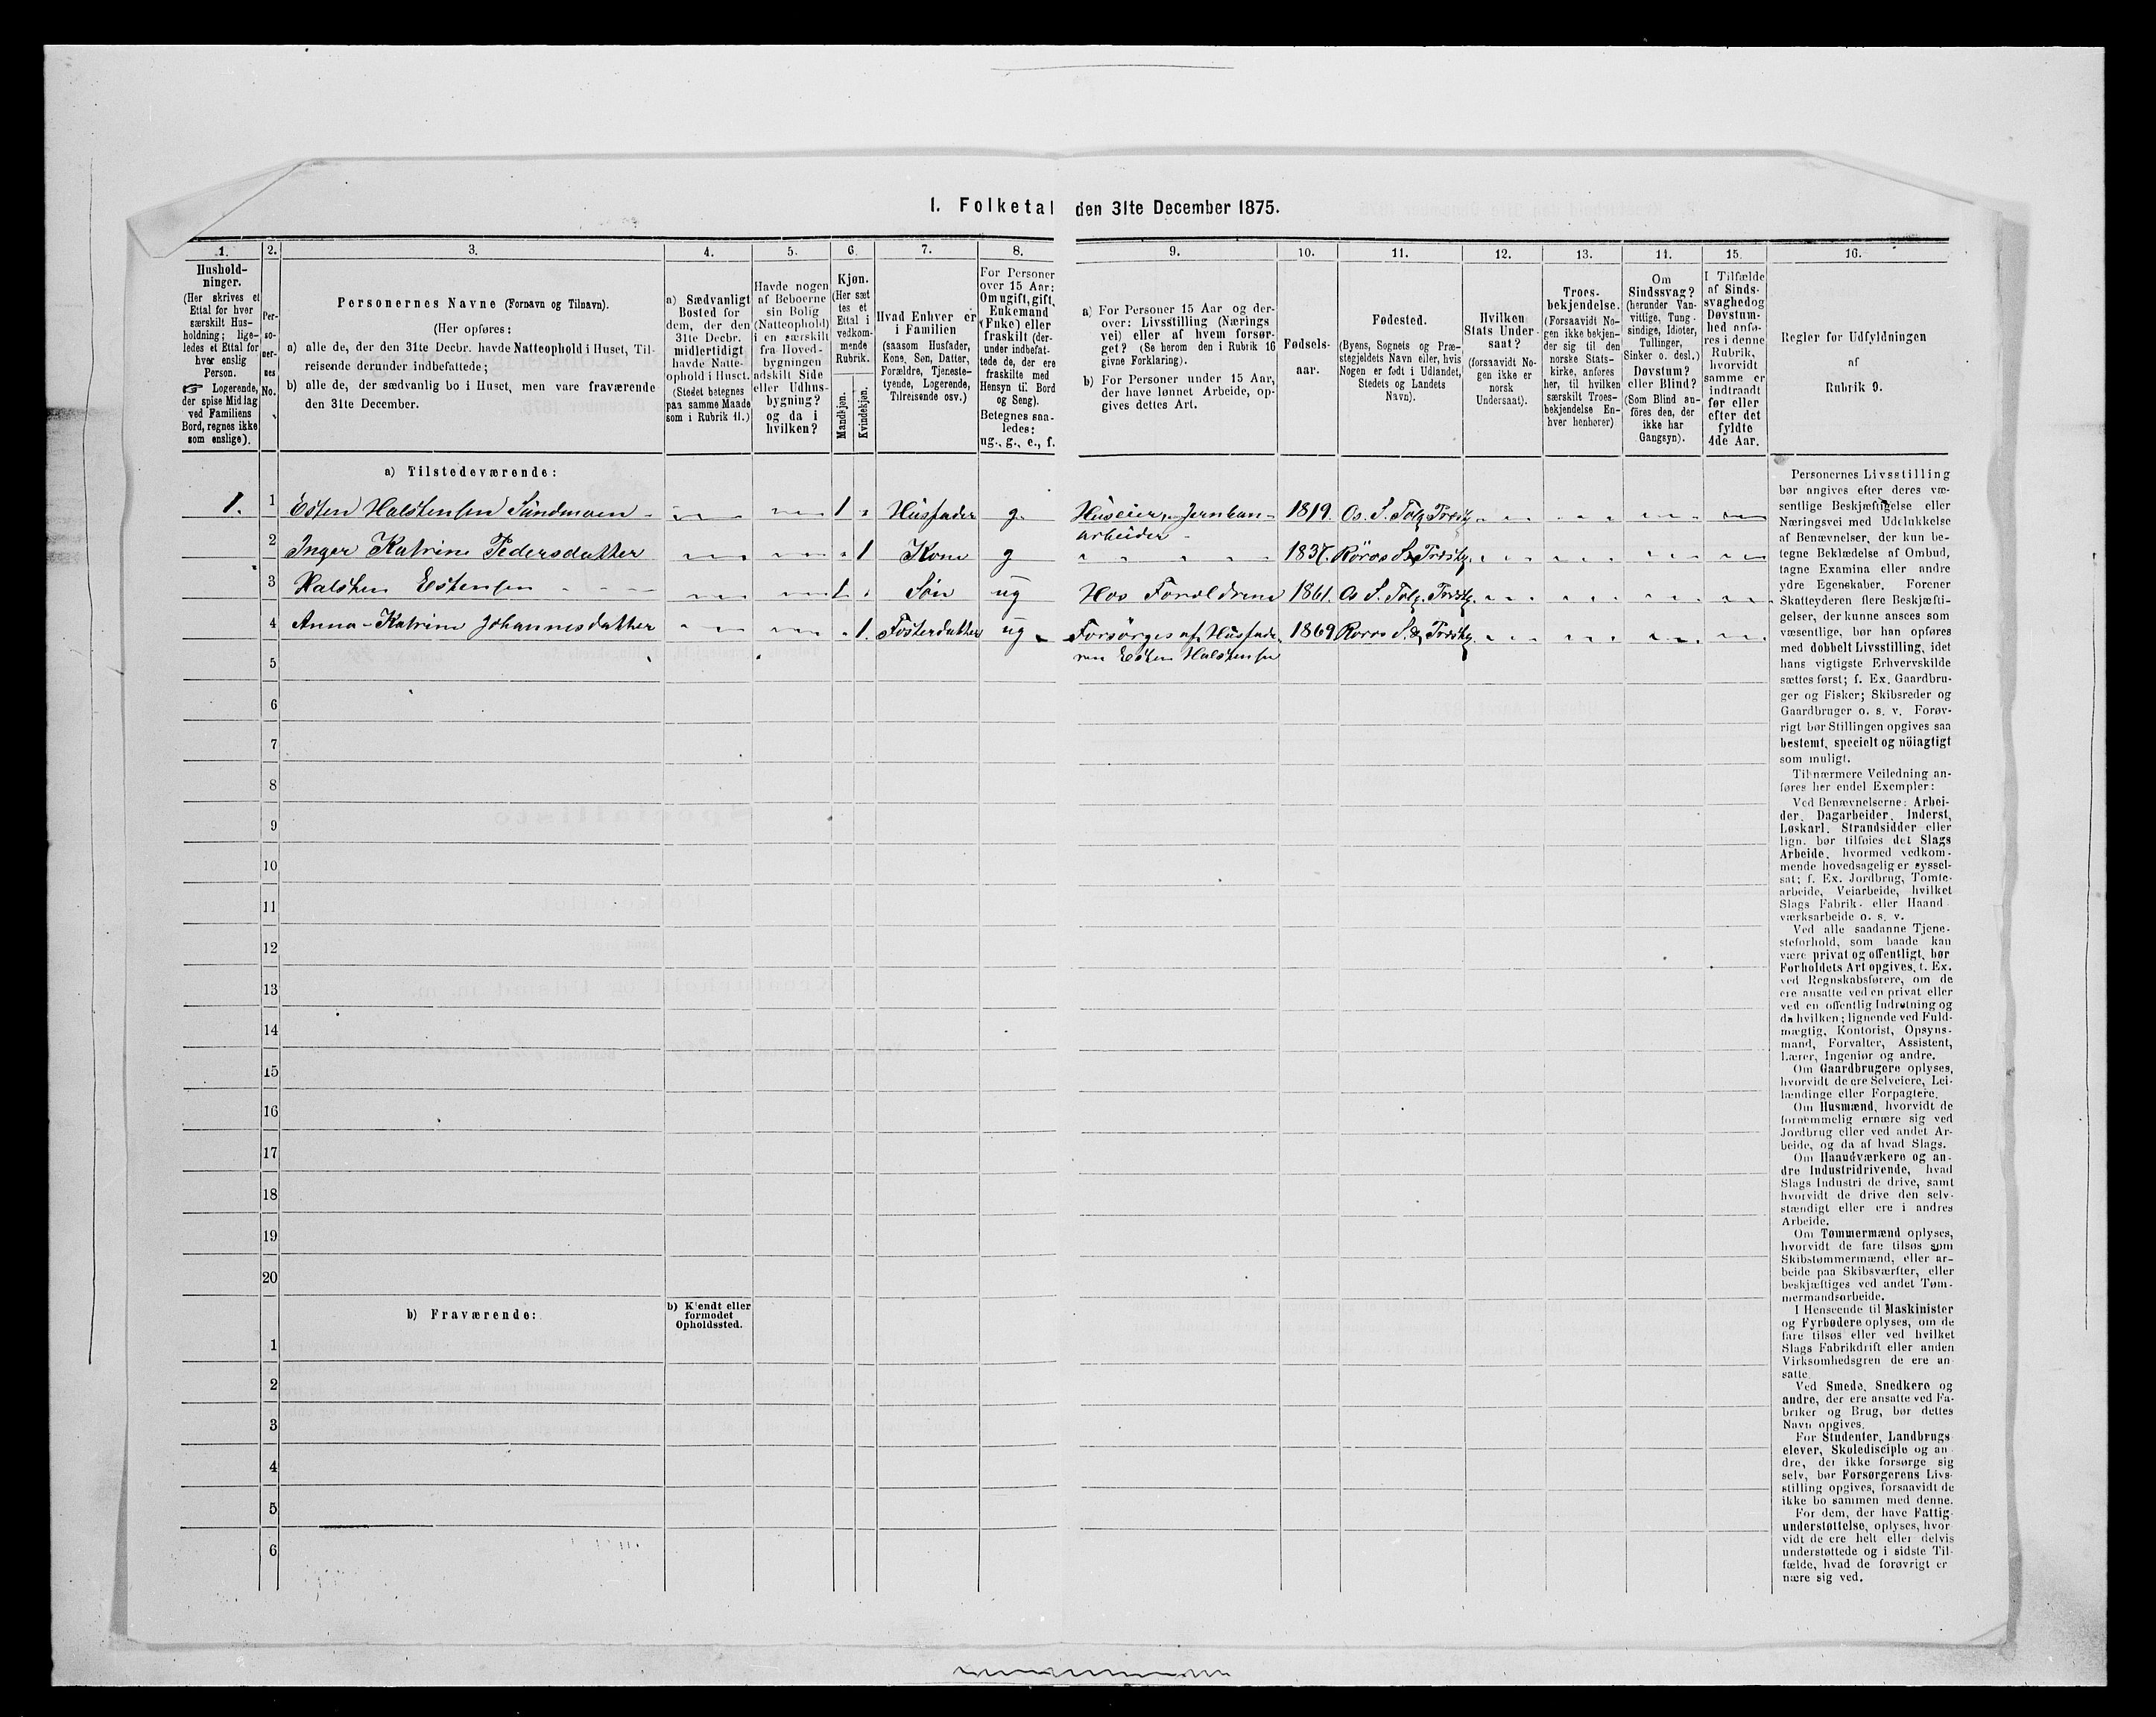 I. Folketal den 31te December 1875.
1. 2. 3. 4. 5. 6. 7. 8. 9. 10. 11. 12. 13. 14. 15. 16.
Hushold-
ninger.
(Her skrives et
Ettal for hver
særskilt Hus-
holdning; lige-
ledes et Ettal for
hver enslig
Person.
☞ Logerende,
der spise Middag
ved Familiens
Bord, regnes ikke
som enslige).
Per-
so-
ner-
nes
No.
Personernes Navne (Fornavn og Tilnavn).
(Her opføres:
a) alle de, der den 31te Decbr. havde Natteophold i Huset, Til-
reisende derunder indbefattede;
b) alle de, der sædvanlig bo i Huset, men vare fraværende
den 31te December.
a) Sædvanligt
Bosted for
dem, der den
31te Decbr.
midlertidigt
havde Natte-
ophold i Huset.
(Stedet betegnes
paa samme Maade
som i Rubrik 11.)
Havde nogen
af Beboerne
sin Bolig
(Natteophold)
i en særskilt
fra Hoved-
bygningen
adskilt Side
eller Udhus-
bygning?
og da i
hvilken?
Kjøn.
(Her sæt
tes et
Ettal i
vedkom-
mende
Rubrik.
Mandkjøn.
Kvindekjøn.
Hvad Enhver er
i Familien
(saasom Husfader,
Kone, Søn, Datter,
Forældre, Tjeneste-
tyende, Logerende,
Tilreisende osv.)
For Personer
over 15 Aar:
Om ugift, gift,
Enkemand
(Enke) eller
fraskilt (der-
under indbefat-
tede de, der ere
fraskilte med
Hensyn til Bord
og Seng).
Betegnes saa-
ledes:
ug., g., e., f.
a) For Personer 15 Aar og der-
over: Livsstilling (Nærings
vei) eller af hvem forsør-
get? (Se herom den i Rubrik 16
givne Forklaring).
b) For Personer under 15 Aar,
der have lønnet Arbeide, op-
gives dettes Art.
Fødsels-
aar.
Fødested.
(Byens, Sognets og Præ-
stegjeldets Navn eller, hvis
Nogen er født i Udlandet,
Stedets og Landets
Navn).
Hvilken
Stats Under-
saat?
(forsaavidt No-
gen ikke er
norsk
Undersaat).
Troes-
bekjendelse.
(Forsaavidt No-
gen ikke bekjen-
der sig til den
norske Stats-
kirke, anføres
her, til hvilken
særskilt Troes-
bekjendelse En-
hver henhører)
Om
Sindssvag?
(herunder Van-
vittige, Tung-
sindige, Idioter,
Tullinger,
Sinker o. desl.)
Døvstum?
eller Blind?
(Som Blind an-
føres den, der
ikke har
Gangsyn).
I Tilfælde
af Sinds-
svaghed og
Døvstum-
hed anfø-
res i denne
Rubrik,
hvorvidt
samme er
indtraadt
før eller
efter det
fyldte
4de Aar.
Regler for Udfyldningen
af
Rubrik 9.
a) Tilstedeværende:
1. 1 Esten Halstensen Sundmoen 1 Husfader g. Huseier, Jernban- 1819. Os. S. Tolg. Præstg.
arbeider
2 Inger Katrine Pedersdatter 1 Kone g 1837. Röros S. & Præstg.
3 Halsten Estensen 1 Søn ug Hos Foreldrene 1861. Os S. Tolg. Præstg.
4 Anna-Katrine Johannesdatter 1. Fosterdatter ug Forsörges af Husfade- 1869 Roros S. & Præstg.
ren Esten Halstensen
5
6
7
8
9
10
11
12
13
14
15
16
17
18
19
20
b) Fraværende:
b) Kjendt eller
formodet
Opholdssted.
1
2
3
4
5
6
Personernes Livsstilling
bør angives efter deres væ-
sentlige Beskjæftigelse eller
Næringsvei med Udelukkelse
af Benævnelser, der kun be-
tegne Beklædelse af Ombud,
tagne Examina eller andre
ydre Egenskaber. Forener
Skatteyderen flere Beskjæfti-
gelser, der kunne ansees som
væsentlige, bør han opføres
med dobbelt Livsstilling, idet
hans vigtigste Erhvervskilde
sættes først; f. Ex. Gaardbru-
ger og Fisker; Skibsreder og
Gaardbruger o. s. v. Forøv-
rigt bør Stillingen opgives saa
bestemt, specielt og nöiagtigt
som muligt.
Til nærmere Veiledning an-
føres her endel Exempler:
Ved Benævnelserne: Arbei-
der, Dagarbeider, Inderst,
Løskarl, Strandsidder eller
lign. bør tilføies det Slags
Arbeide, hvormed vedkom-
mende hovedsagelig er syssel-
sat; f. Ex. Jordbrug, Tomte-
arbeide, Veiarbeide, hvilket
Slags Fabrik- eller Haand-
værksarbeide o. s. v.
Ved alle saadanne Tjene-
steforhold, som baade kan
være privat og offentligt, bør
Forholdets Art opgives, f. Ex.
ved Regnskabsførere, om de
ere ansatte ved en privat eller
ved en offentlig Indretning og
da hvilken; lignende ved Fuld-
mægtig, Kontorist, Opsyns-
mand, Forvalter, Assistent,
Lærer, Ingeniør og andre.
Om Gaardbrugere oplyses,
hvorvidt de ere Selveiere, Lei-
lændinge eller Forpagtere.
Om Husmænd, hvorvidt de
fornemmelig ernære sig ved
Jordbrug eller ved andet Ar-
beide, og da af hvad Slags.
Om Haandværkere og an-
dre Industridrivende, hvad
Slags Industri de drive, samt
hvorvidt de drive den selv-
stændigt eller ere i andres
Arbeide.
Om Tømmermænd oplyses,
hvorvidt de fare tilsøs som
Skibstømmermænd, eller ar-
beide paa Skibsværfter, eller
beskjæftiges ved andet Tøm-
mermandsarbeide.
I Henseende til Maskinister
og Fyrbødere oplyses, om de
fare tilsøs eller ved hvilket
Slags Fabrikdrift eller anden
Virksomhedsgren de ere an-
satte.
Ved Smede, Snedkere og
andre, der ere ansatte ved Fa-
briker og Brug, bør dettes
Navn opgives.
For Studenter, Landbrugs-
elever, Skoledisciple og an-
dre, der ikke forsørge sig
selv, bør Forsørgerens Livs-
stilling opgives, forsaavidt de
ikke bo sammen med denne.
For dem, der have Fattig-
understøttelse, oplyses, hvor-
vidt de ere helt eller delvis
understøttede og i sidste Til-
fælde, hvad de forøvrigt er-
nære sig ved.